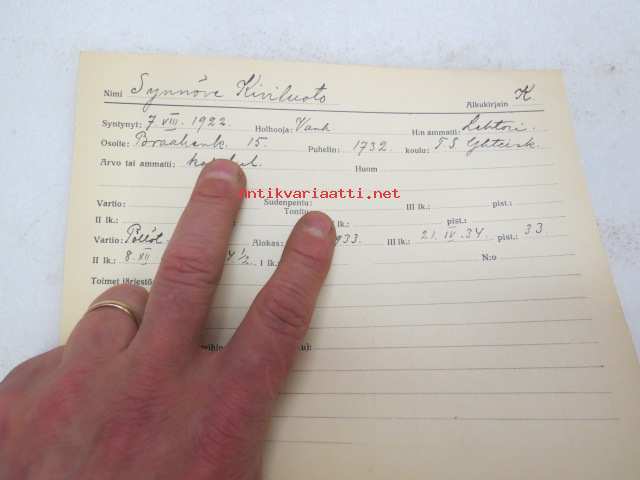 Nimi Synnöve Kiviluoto Alkukirjain K.
Syntynyt: 7 VIII. 1922. Holhooja: Vanh. H:n ammatti: Lehtori.
Osoite: Poraahenk. 15. Puhelin: 1732 koulu: T.S. Yhteisk.
Arvo tai ammatti: Huom
antikvariaatti.net
Vartio: Sudenpentu: III lk.: pist.:
II lk.: lk.: pist.:
Vartio: Pöllöt Alokas: 1933. III lk.: 21. IV. 34. pist.: 33
II lk.: 8. XII 4 1/2. I lk. N:o
Toimet järjestö